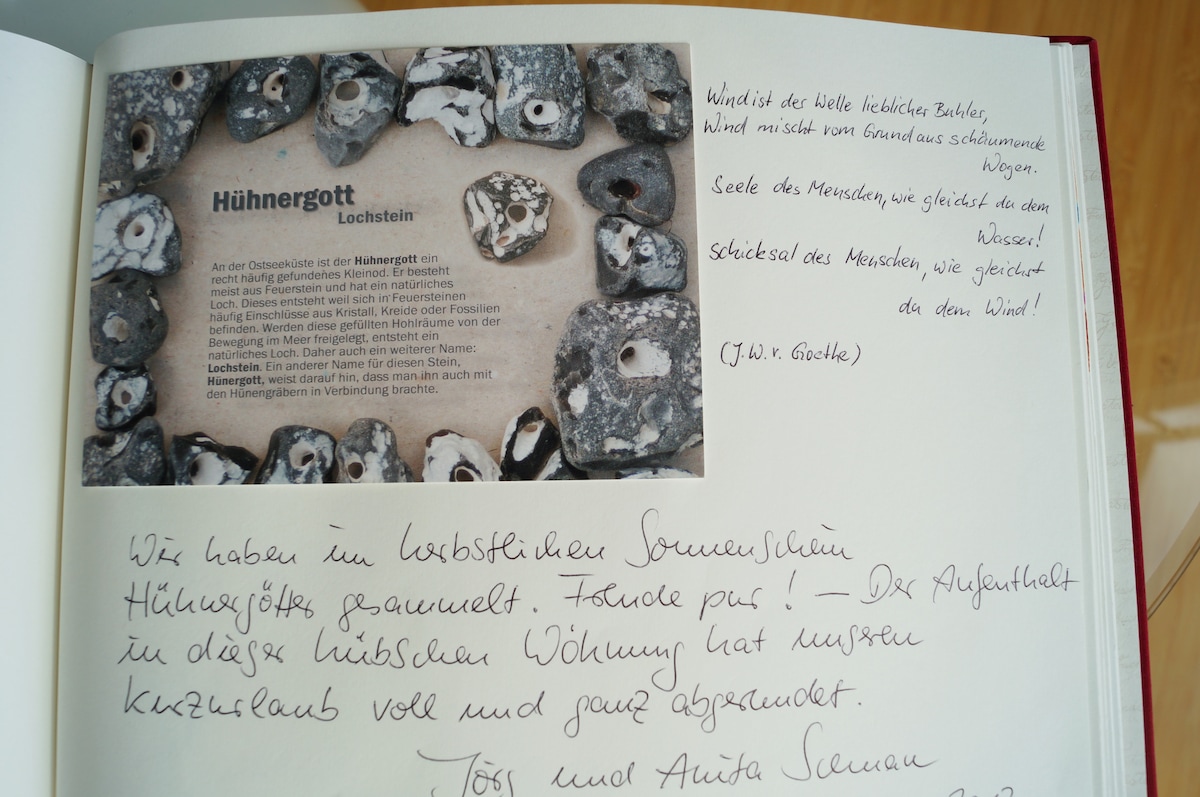 Hühnergott
Lochstein
An der Ostseeküste ist der Hühnergott ein
recht häufig gefundenes Kleinod. Er besteht
meist aus Feuerstein und hat ein natürliches
Loch. Dieses entsteht weil sich in Feuersteinen
häufig Einschlüsse aus Kristall, Kreide oder Fossilien
befinden. Werden diese gefüllten Hohlräume von der
Bewegung im Meer freigelegt, entsteht ein
natürliches Loch. Daher auch ein weiterer Name:
Lochstein. Ein anderer Name für diesen Stein,
Hünergott, weist darauf hin, dass man ihn auch mit
den Hünengräbern in Verbindung brachte.
Wind ist der Welle lieblicher Buhler,
Wind mischt vom Grund aus schäumende
Wogen.
Seele des Menschen, wie gleichst du dem
Wasser!
Schicksal des Menschen, wie gleichst
du dem Wind!
(J. W. v. Goethe)
Wir haben im herbstlichen Sonnenschein
Hühnergötter gesammelt. Freude pur! – Der Aufenthalt
in dieser hübschen Wohnung hat unseren
Kurzurlaub voll und ganz abgerundet.
Jörg und Anita